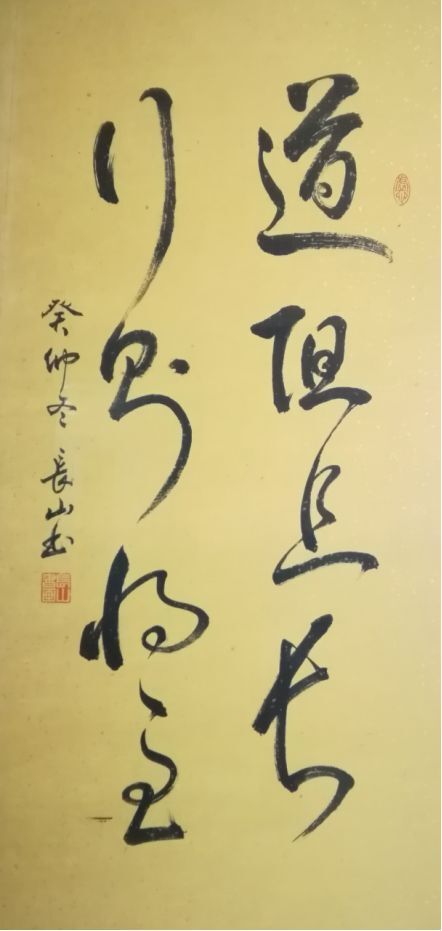 道阻且长
行则将至
癸卯冬 長山书